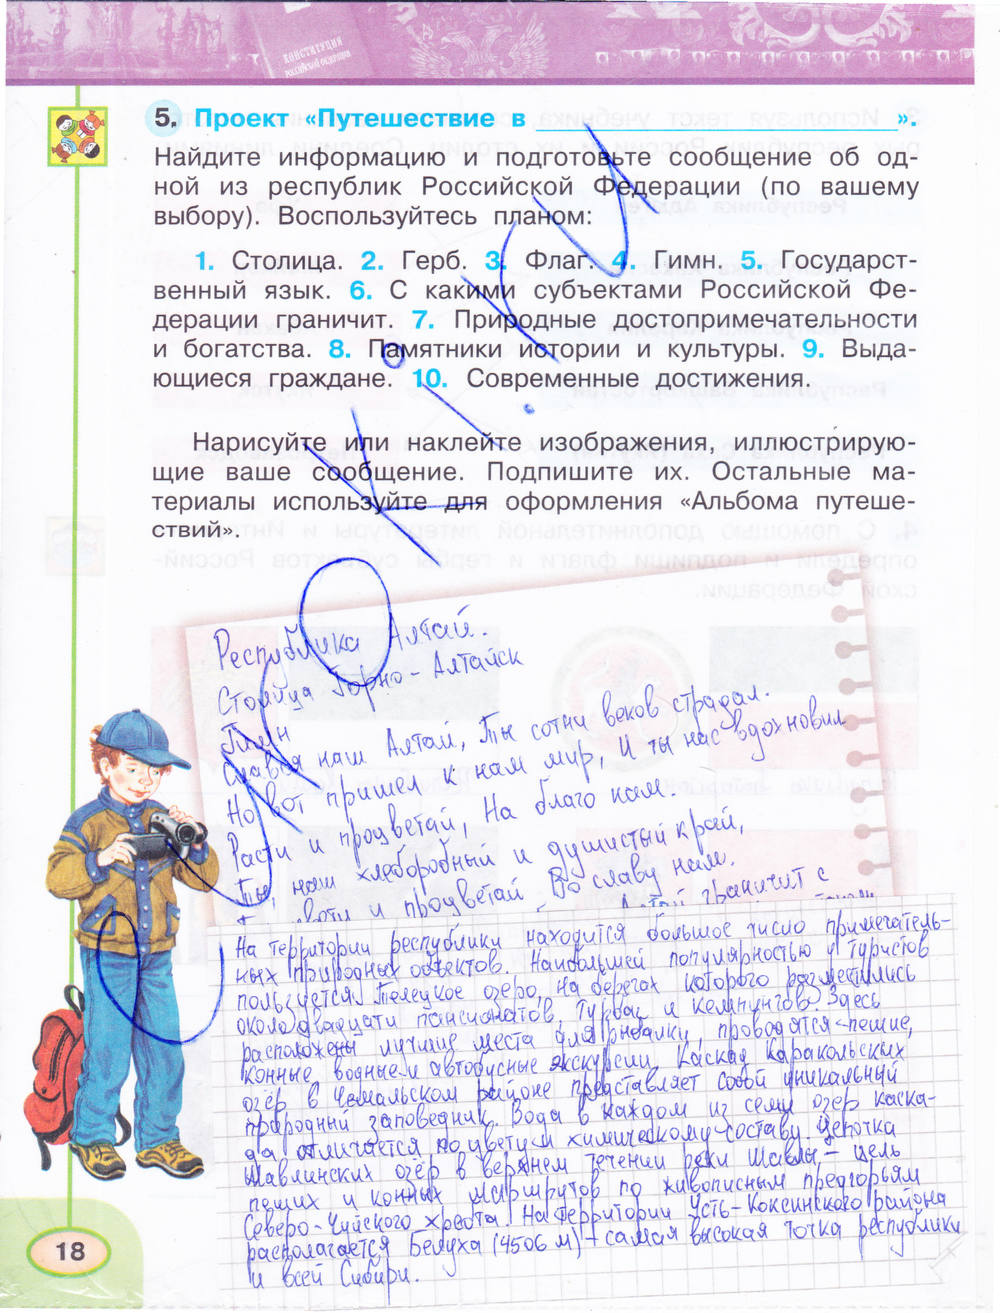 КОНСТИТУЦИЯ
РОССИЙСКОЙ ФЕДЕРАЦИИ
5. Проект «Путешествие в ».
Найдите информацию и подготовьте сообщение об од-
ной из республик Российской Федерации (по вашему
выбору). Воспользуйтесь планом:
1. Столица. 2. Герб. 3. Флаг. 4. Гимн. 5. Государст-
венный язык. 6. С какими субъектами Российской Фе-
дерации граничит. 7. Природные достопримечательности
и богатства. 8. Памятники истории и культуры. 9. Выда-
ющиеся граждане. 10. Современные достижения.
Нарисуйте или наклейте изображения, иллюстрирую-
щие ваше сообщение. Подпишите их. Остальные ма-
териалы используйте для оформления «Альбома путеше-
ствий».
Республика Алтай.
Столица Горно-Алтайск
Гимн
Славься наш Алтай, Ты сотни веков страдал.
Но вот пришел к нам мир, И ты нас вдохновил
Расти и процветай, На благо нам.
Ты, наш хлеборобный и душистый край,
и процветай Во славу нам.
Алтай граничит с
На территории республики находится большое число примечатель-
ных природных объектов. Наибольшей популярностью у туристов
пользуется Телецкое озеро, на берегах которого разместились
около двадцати пансионатов, турбаз и кемпингов. Здесь
расположены лучшие места для рыбалки, проводятся пешие,
конные водные и автобусные экскурсии. Каскад Каракольских
озёр в Чемальском районе представляет собой уникальный
природный заповедник. Вода в каждом из семи озёр каска-
да отличается по цвету и химическому составу. Цепочка
Шавлинских озёр в верхнем течении реки Шавлы - цель
пеших и конных маршрутов по живописным предгорьям
Северо-Чуйского хребта. На территории Усть-Коксинского района
располагается Белуха (4506 м) - самая высокая точка республики
и всей Сибири.
18